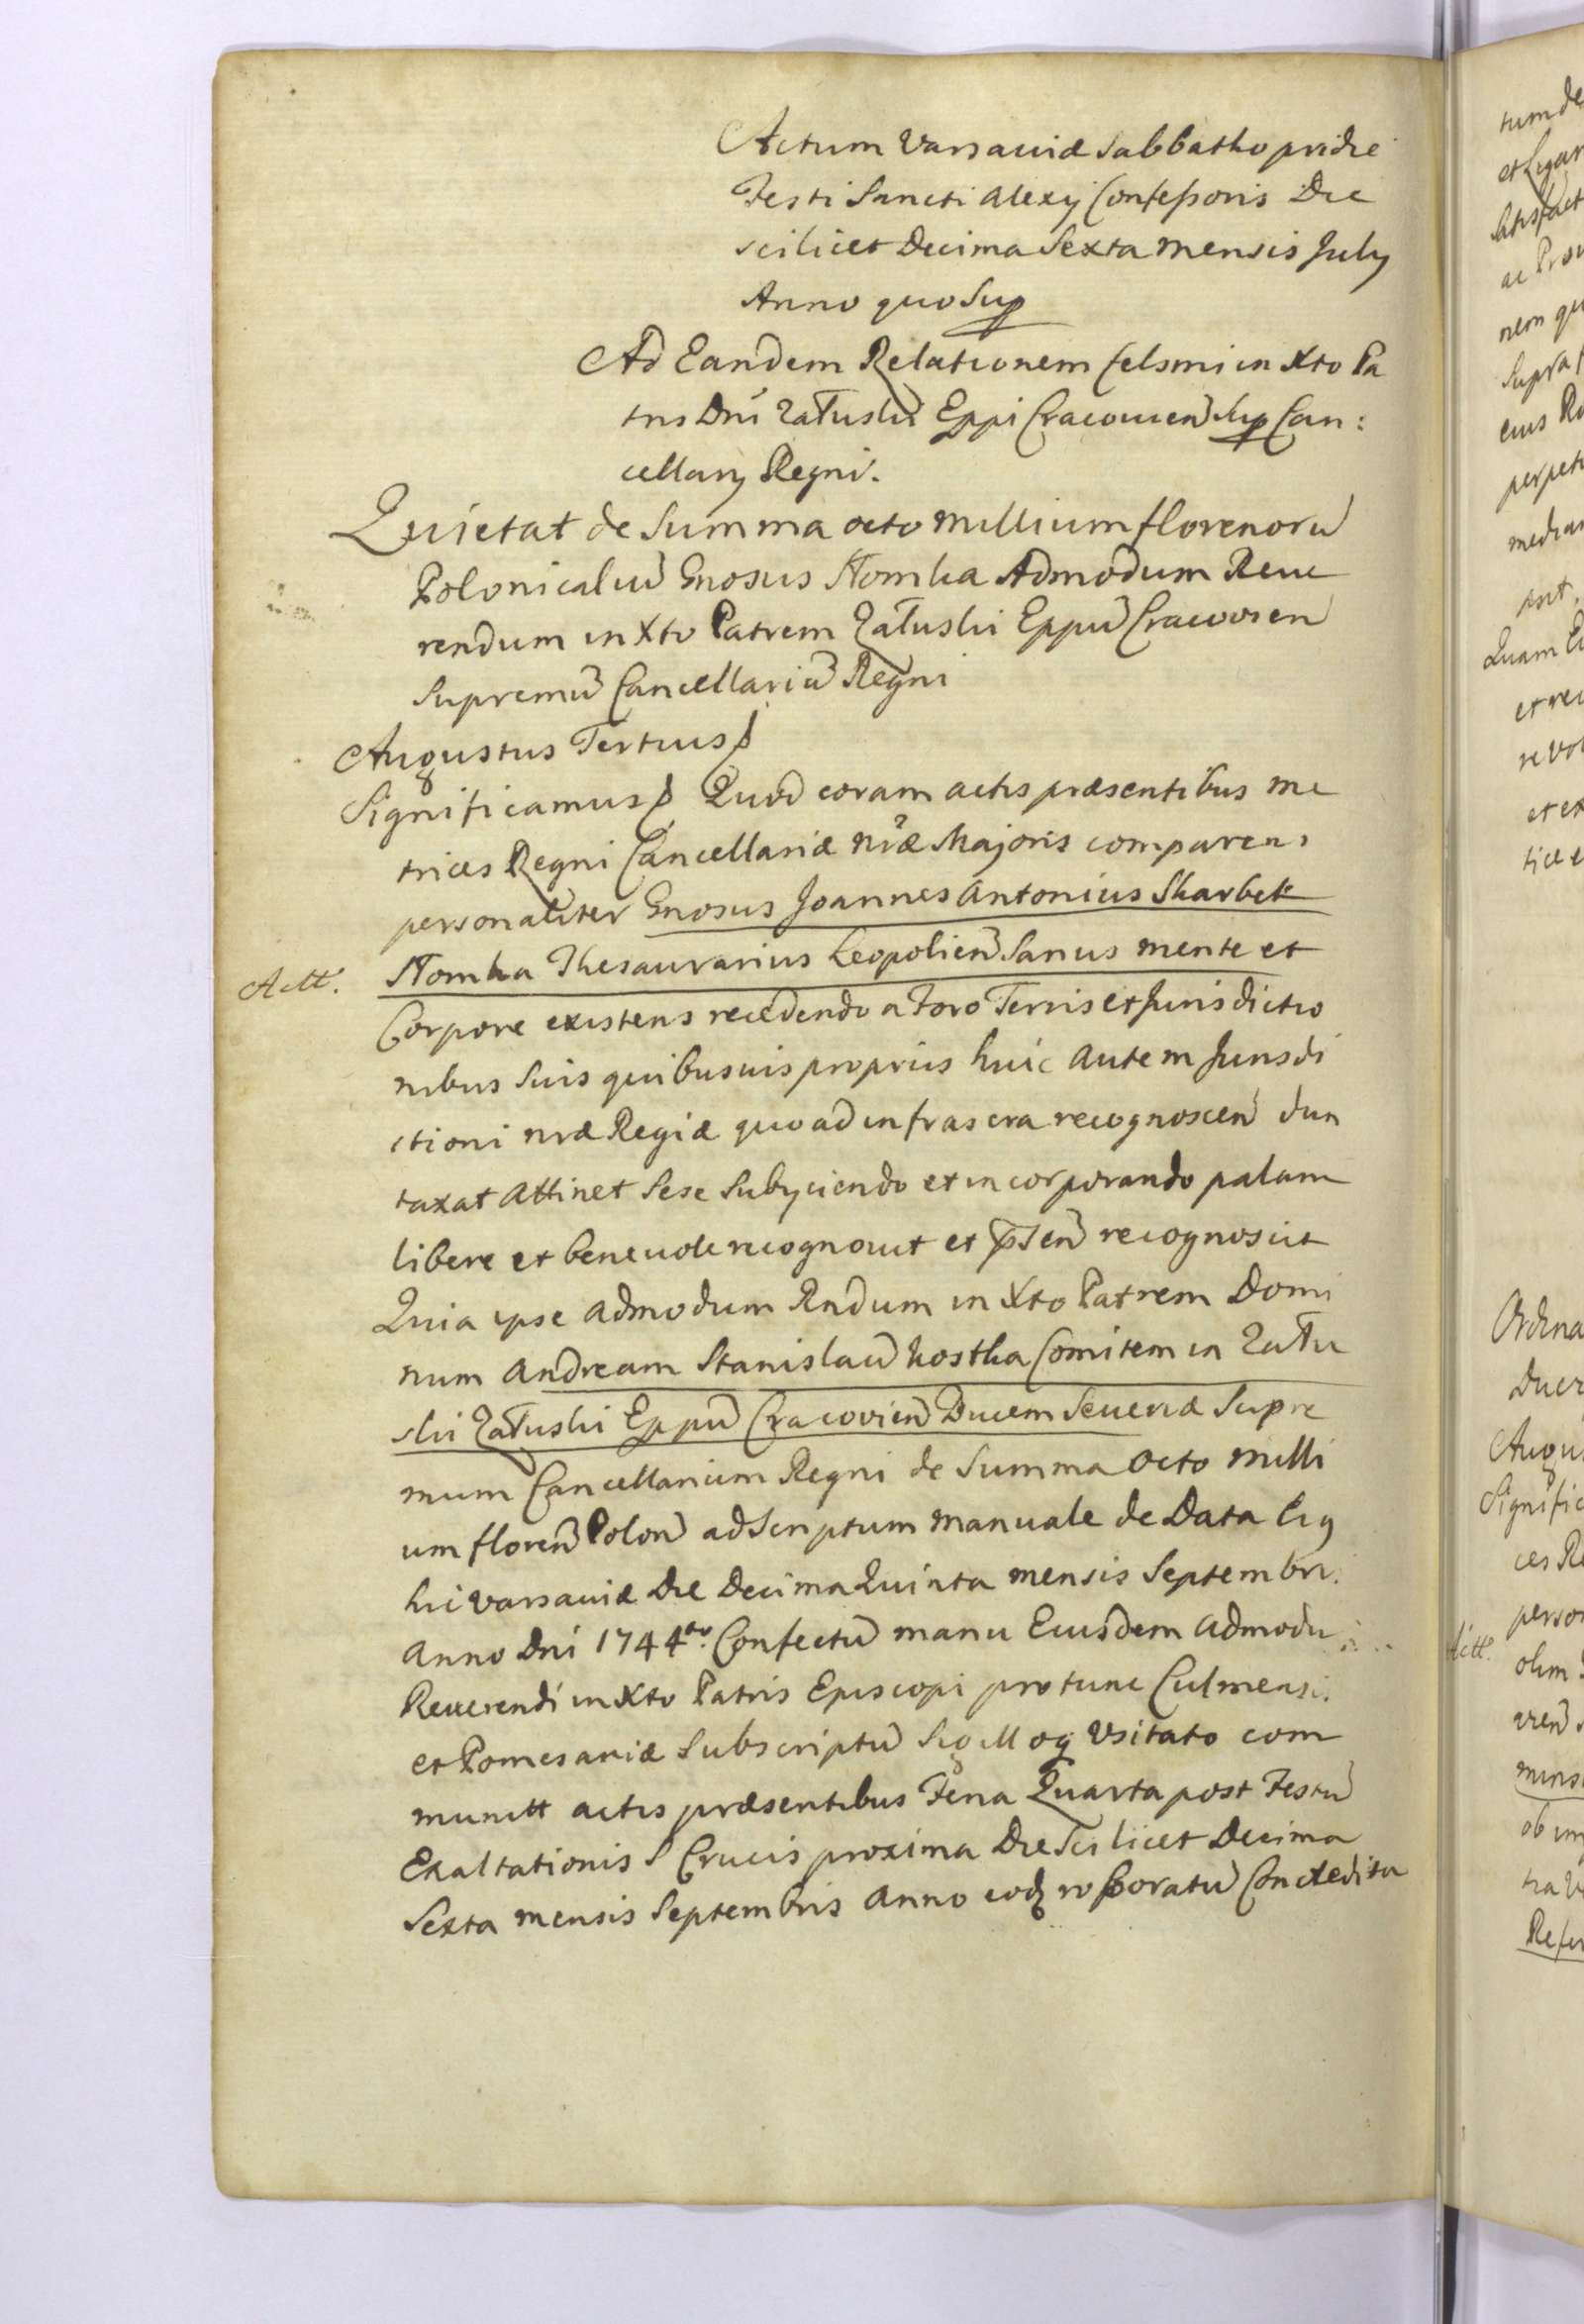 Actum Varsaviæ Sabbatho pridie
Festi Sancti Alexij Confessoris Die
scilicet Decima Sexta Mensis July
Anno quo Sup
Ad Eandem Relationem Celsmi in Xto Pa
tris Dni Załuski Eppi Cracovien Sup Can:
cellarij Regni.
Quietat de Summa octo Millium florenorũ
Polonicaliũ Gnosus Słomka Admodum Reue
rendum in Xto Patrem Załuski Eppũ Cracovien
Supremũ Cancellariũ Regni
Augustus Tertius
Significamus Quod coram actis præsentibus Me
trices Regni Cancellariæ nræ Majoris comparens
personaliter Gnosus Joannes Antonius Skarbek
Actt. Słomka Thesaurarius Leopolien Sanus mente et
Corpore existens recedendo a Foro Terris et Jurisdictio
nibus Suis quibusuis proprijs huic autem Jurisdi
ctioni nræ Regiæ quo ad infrascra recognoscen dun
taxat attinet Sese Subyciendo et incorporando palam
libere et beneuole recognouit et psen recognoscit
Quia ipse Admodum Rndum in Xto Patrem Domi
num Andream Stanislaũ Kostka Comitem in Zału
ski Załuski Eppũ Cracovien Ducem Seueriæ Supre
mum Cancellarium Regni de Summa Octo Milli
um floren Polon ad Scriptum Manuale de Data
Varsaviæ Die Decima Quinta mensis Septembri.
Anno Dni 1744to. Confectũ manu Eiusdem Admodu
Reuerendi in Xto Patris Episcopi protunc Culmensi.
et Pomesaniæ Subscriptũ Sigilloq Usitato com
munitt actis præsentibus Feria Quarta post Festũ
Exaltationis S Crucis proxima Die Scilicet Decima
Sexta mensis Septembris Anno eodq roboratũ